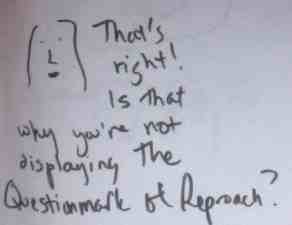 That's
right!
Is that
why you're not
displaying the
Questionmark of Reproach?